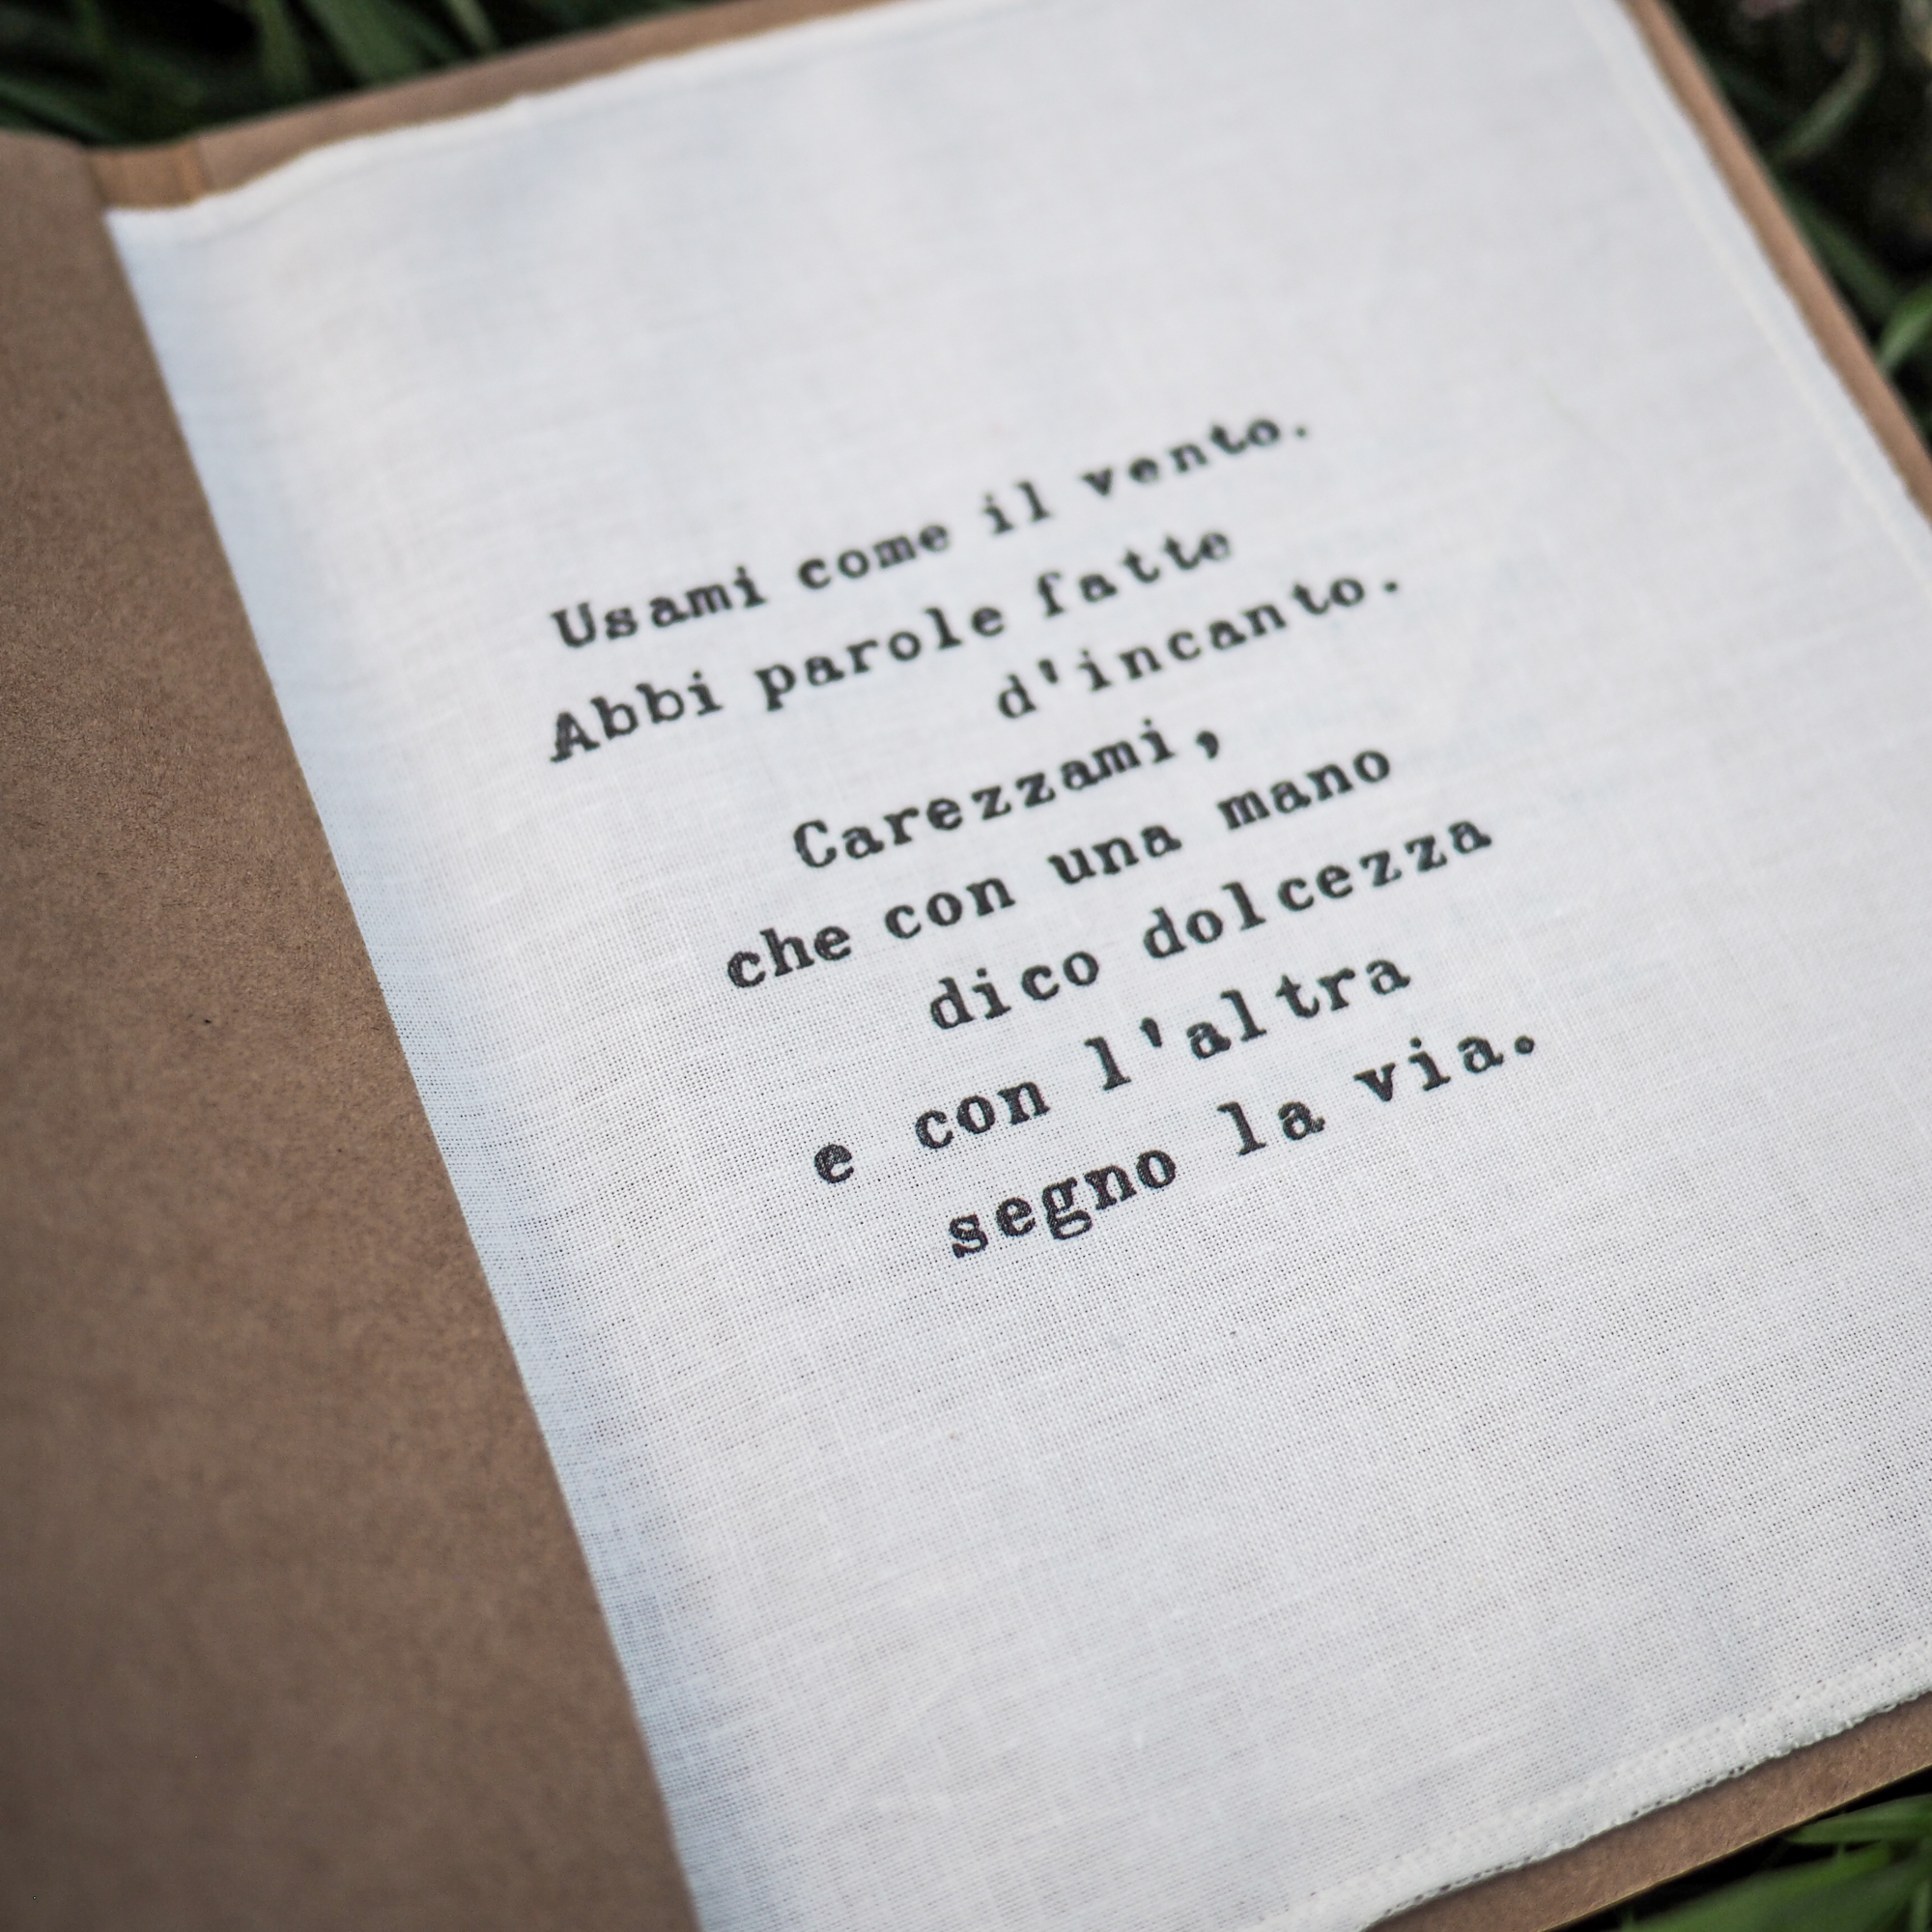 Usami come il vento.
Abbi parole fatte
d'incanto.
Carezzami,
che con una mano
dico dolcezza
e con l'altra
segno la via.